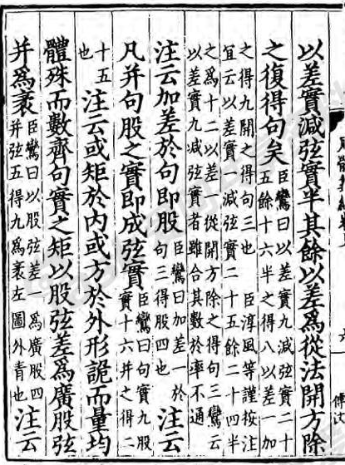 以差實減弦實半其餘以差爲從法開方除
之復得句矣臣鸞曰以差實九減弦實二十
五餘十六半之得八以差一加
之得九開之得句三也 臣淳風等謹按注
宜云以差實一減弦實二十五餘二十四半
之爲十二以差一從開方除之得句三鸞云
以差實九減弦實者雖合其數於率不通
注云加差於句即股臣鸞曰加差一於
句三得股四也注云
凡并句股之實即成弦實臣鸞曰句實九股
實十六并之得二
十五
也注云或矩於內或方於外形詭而量均
體殊而數齊句實之矩以股弦差爲廣股弦
并爲袤臣鸞曰以股弦差一爲廣股四
并弦五得九爲袤左圖外青也注云